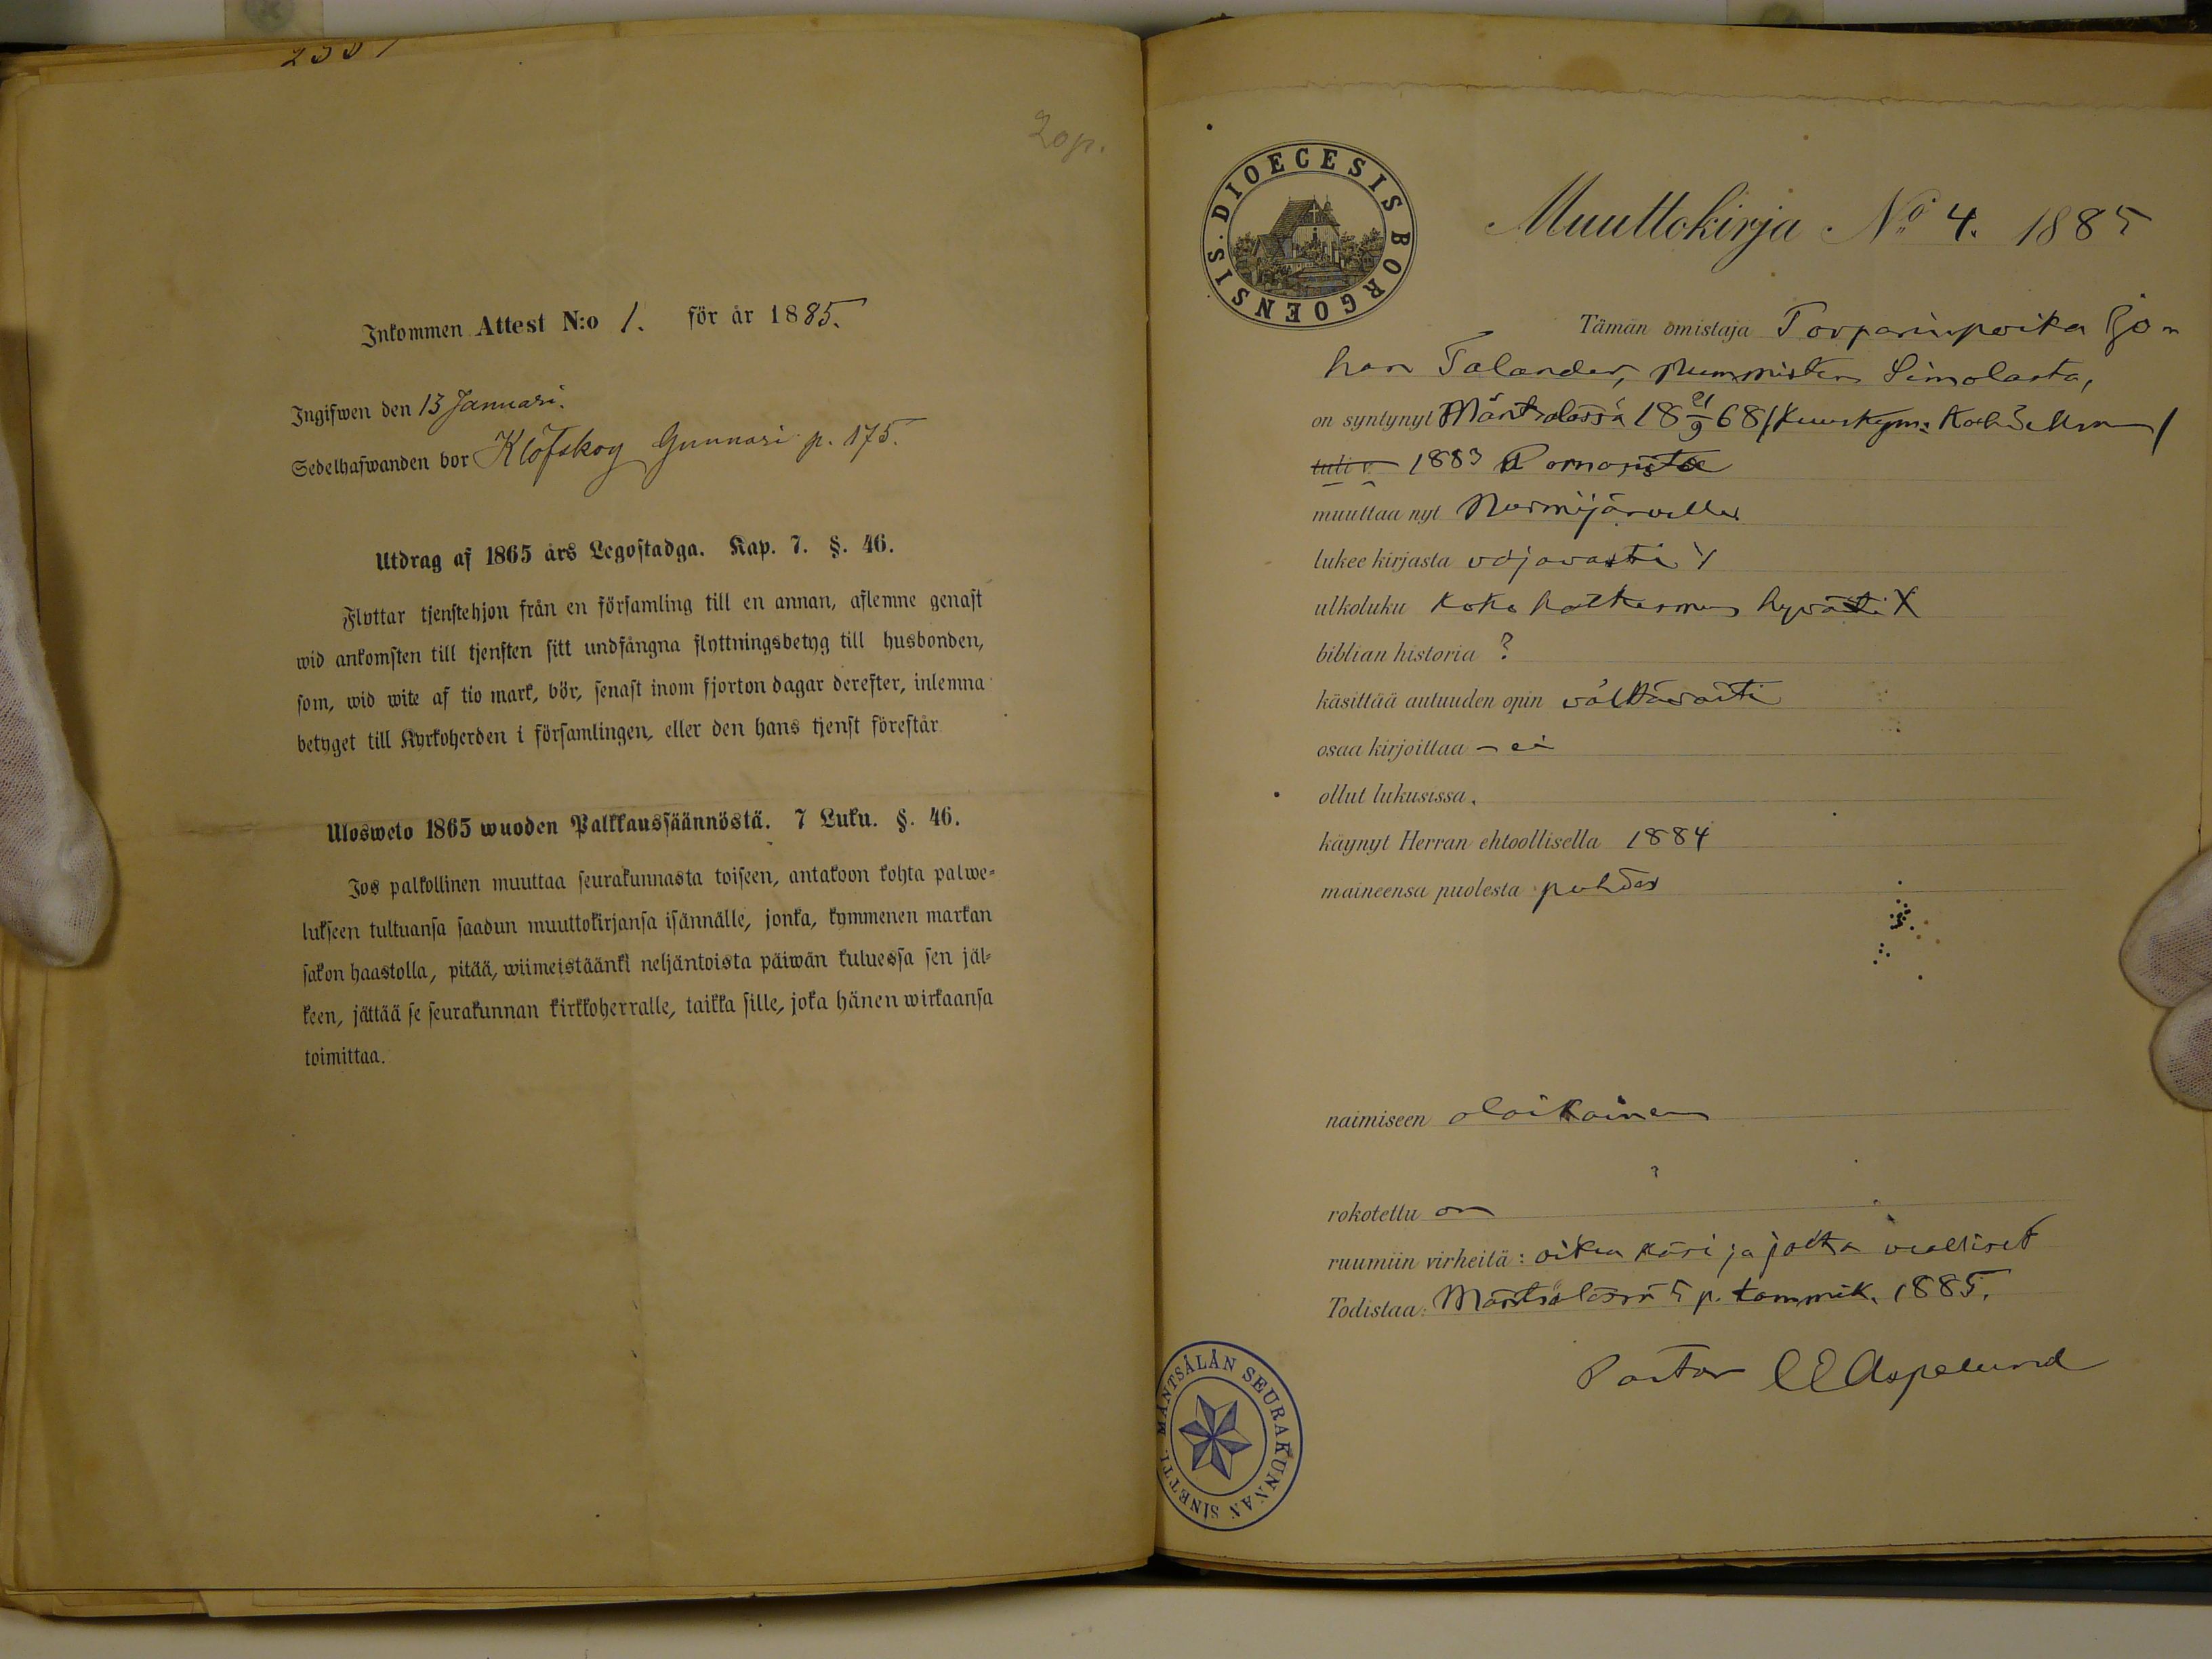 20p.
Inkommen Attest N:o 1. för år 1885.
Ingifwen den 13 Januari.
Sedelhafwanden bor Klöfskog Gunnari p. 175.
Utdrag af 1865 års Legostadga. Kap. 7. §. 46.
Flyttar tjenstehjon från en församling till en annan, aflemne genast
wid ankomsten till tjensten sitt undfångna flyttningsbetyg till husbonden,
som, wid wite af tio mark, bör, senast inom fjorton dagar derefter, inlemna
betyget till Kyrkoherden i församlingen, eller den hans tjenst förestår.
Ulosweto 1865 wuoden Palkkaussäännöstä. 7 Luku. §. 46.
Jos palkollinen muuttaa seurakunnasta toiseen, antakoon kohta palwe-
lukseen tultuansa saadun muuttokirjansa isännälle, jonka, kymmenen markan
sakon haastolla, pitää, wiimeistäänki neljäntoista päiwän kuluessa sen jäl-
keen, jättää se seurakunnan kirkkoherralle, taikka sille, joka hänen wirkaansa
toimittaa.
DIOECESIS BORGOENSIS.
Muuttokirja No 4. 1885
Tämän omistaja Torparinpoika Jo-
han Talander, Nummisten Simolasta,
on syntynyt Mäntsälässä 18 21/9 68 (Kuuskym: Kahdeksan)
tuli v. 1883 Pornaista
muuttaa nyt Nurmijärvelle
lukee kirjasta vajavasti
ulkoluku koko katkesmus hyvästi X
biblian historia ?
käsittää autuuden opin välttävästi
osaa kirjoittaa - ei
ollut lukusissa.
käynyt Herran ehtoollisella 1884
maineensa puolesta puhdas
naimiseen alaikainen
rokotettu on
ruumiin virheitä: oikea käsi ja jalka vialliset
Todistaa: Mäntsälässä 5 p. tammik. 1885.
Pastor Aspelund
MÄNTSÄLÄN SEURAKUNNAN SINETTI.